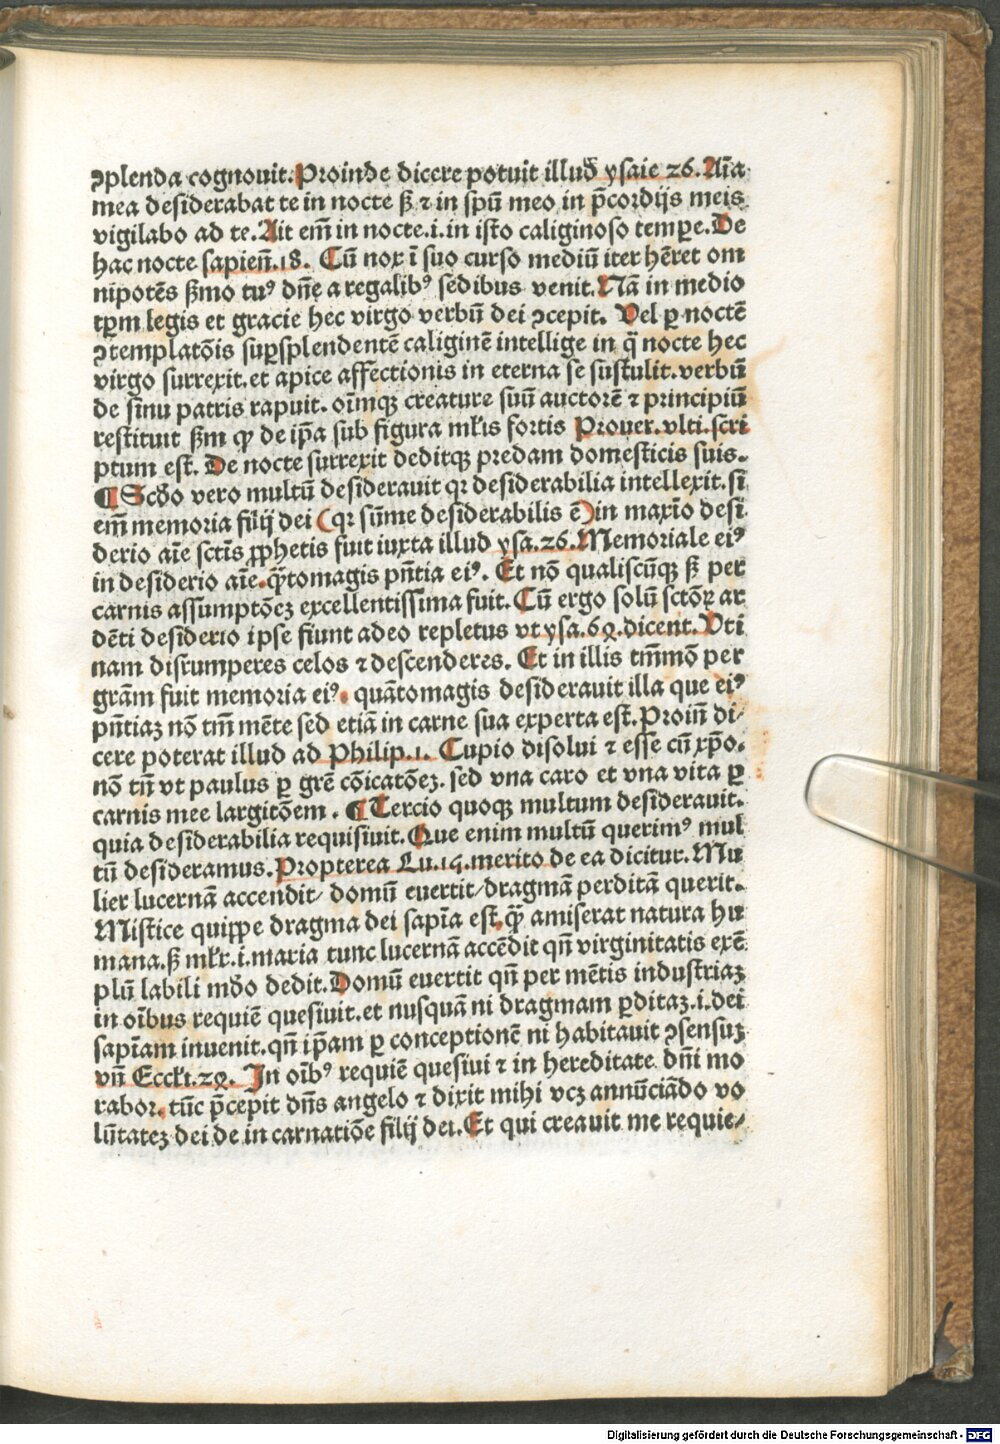 ꝯplenda cognouit. Proinde dicere potuit illud̄ ysaie 26. Aīa
mea desiderabat te in nocte ß ⁊ in spū meo in p̄cordijs meis
vigilabo ad te. Ait em̄ in nocte .i. in isto caliginoso tempe. De
hac nocte sapien̄. 18. Cū nox ī suo curso mediū iter hēret om
nipotēs ßmo tuꝰ dn̄e a regalibꝰ sedibus venit. Nā in medio
tp̄m legis et gracie hec virgo verbū dei ꝯcepit. Vel ꝑ noctē
ꝯtemplatōis suꝑsplendentē caliginē intellige in q̄ nocte hec
virgo surrexit. et apice affectionis in eterna se sustulit. verbū
de sinu patris rapuit. oīmqꝫ creature suū auctorē ⁊ principiū
restituit ßm ꝙ de ip̄a sub figura mlr̄is fortis Prouer. vlti. scri
ptum est. De nocte surrexit deditqꝫ predam domesticis suis.
¶ Scd̄o vero multū desiderauit qꝛ desiderabilia intellexit. si
em̄ memoria filij dei (qꝛ sūme desiderabilis ē) in maxīo desi
derio aīe sctīs ꝓphetis fuit iuxta illud ysa. 26. Memoriale eiꝰ
in desiderio aīe. q̄tomagis pn̄tia eiꝰ. Et nō qualiscūqꝫ ß per
carnis assumptōeꝫ excellentissima fuit. Cū ergo solū sctōꝝ ar
dēti desiderio ipse fiunt adeo repletus vt ysa. 64. dicent. Vti
nam disrumperes celos ⁊ descenderes. Et in illis tm̄mō per
grām fuit memoria eiꝰ. quātomagis desiderauit illa que eiꝰ
pn̄tiaꝫ nō tm̄ mēte sed etiā in carne sua experta est. Proin̄ di⸗
cere poterat illud ad Philip. 1. Cupio disolui ⁊ esse cū xp̄o.
nō tn̄ vt paulus ꝑ grē cōicatōeꝫ. sed vna caro et vna vita ꝑ
carnis mee largitōem. ¶ Tercio quoqꝫ multum desiderauit.
quia desiderabilia requisiuit. Que enim multū querimꝰ mul
tū desideramus. Propterea Lu. 15. merito de ea dicitur. Mu
lier lucernā accendit/ domū euertit/ dragmā perditā querit.
Mistice quippe dragma dei sapīa est. q̄ amiserat natura hu
mana. ß mlr̄. i. maria tunc lucernā accēdit qn̄ virginitatis exē
plū labili mōdo dedit. Domū euertit qn̄ per mētis industriaꝫ
in oībus requiē quesiuit. et nusquā ni dragmam ꝑditaꝫ .i. dei
sapīam inuenit. qn̄ ip̄am ꝑ conceptionē ni habitauit ꝯsensuꝫ
vn̄ Eccl̄i. 24. In oībꝰ requiē quesiui ⁊ in hereditate dn̄i mo
rabor. tūc p̄cepit dn̄s angelo ⁊ dixit mihi vcꝫ annūciādo vo
lūtateꝫ dei de in carnatiōe filij dei. Et qui creauit me requie⸗
Digitalisierung gefördert durch die Deutsche Forschungsgemeinschaft - DFG